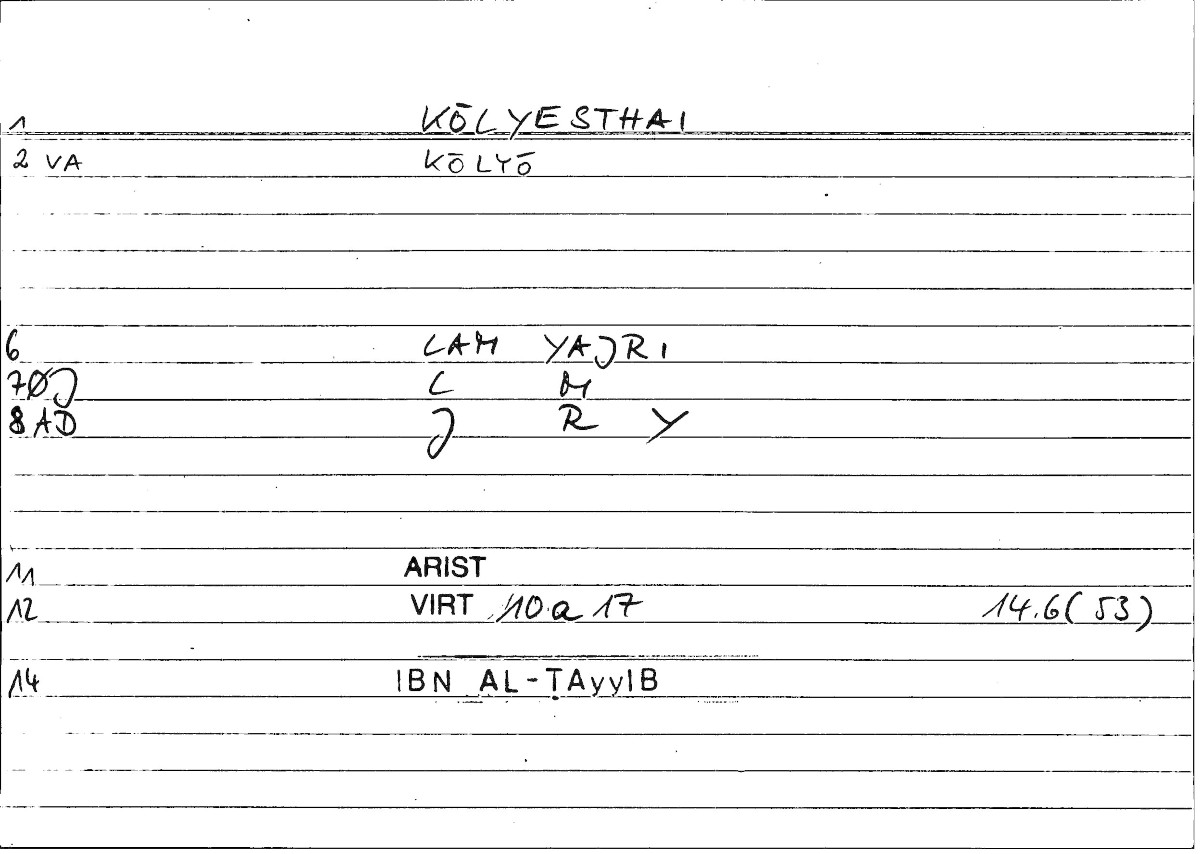 1 KŌLYESTHAI
2 VA KŌLYŌ
6 LAM YAJRI
7ØJ L M
8 AD J R Y
11 ARIST
12 VIRT 10 a 17 14.6(53)
14 IBN AL-ṬAyyIB